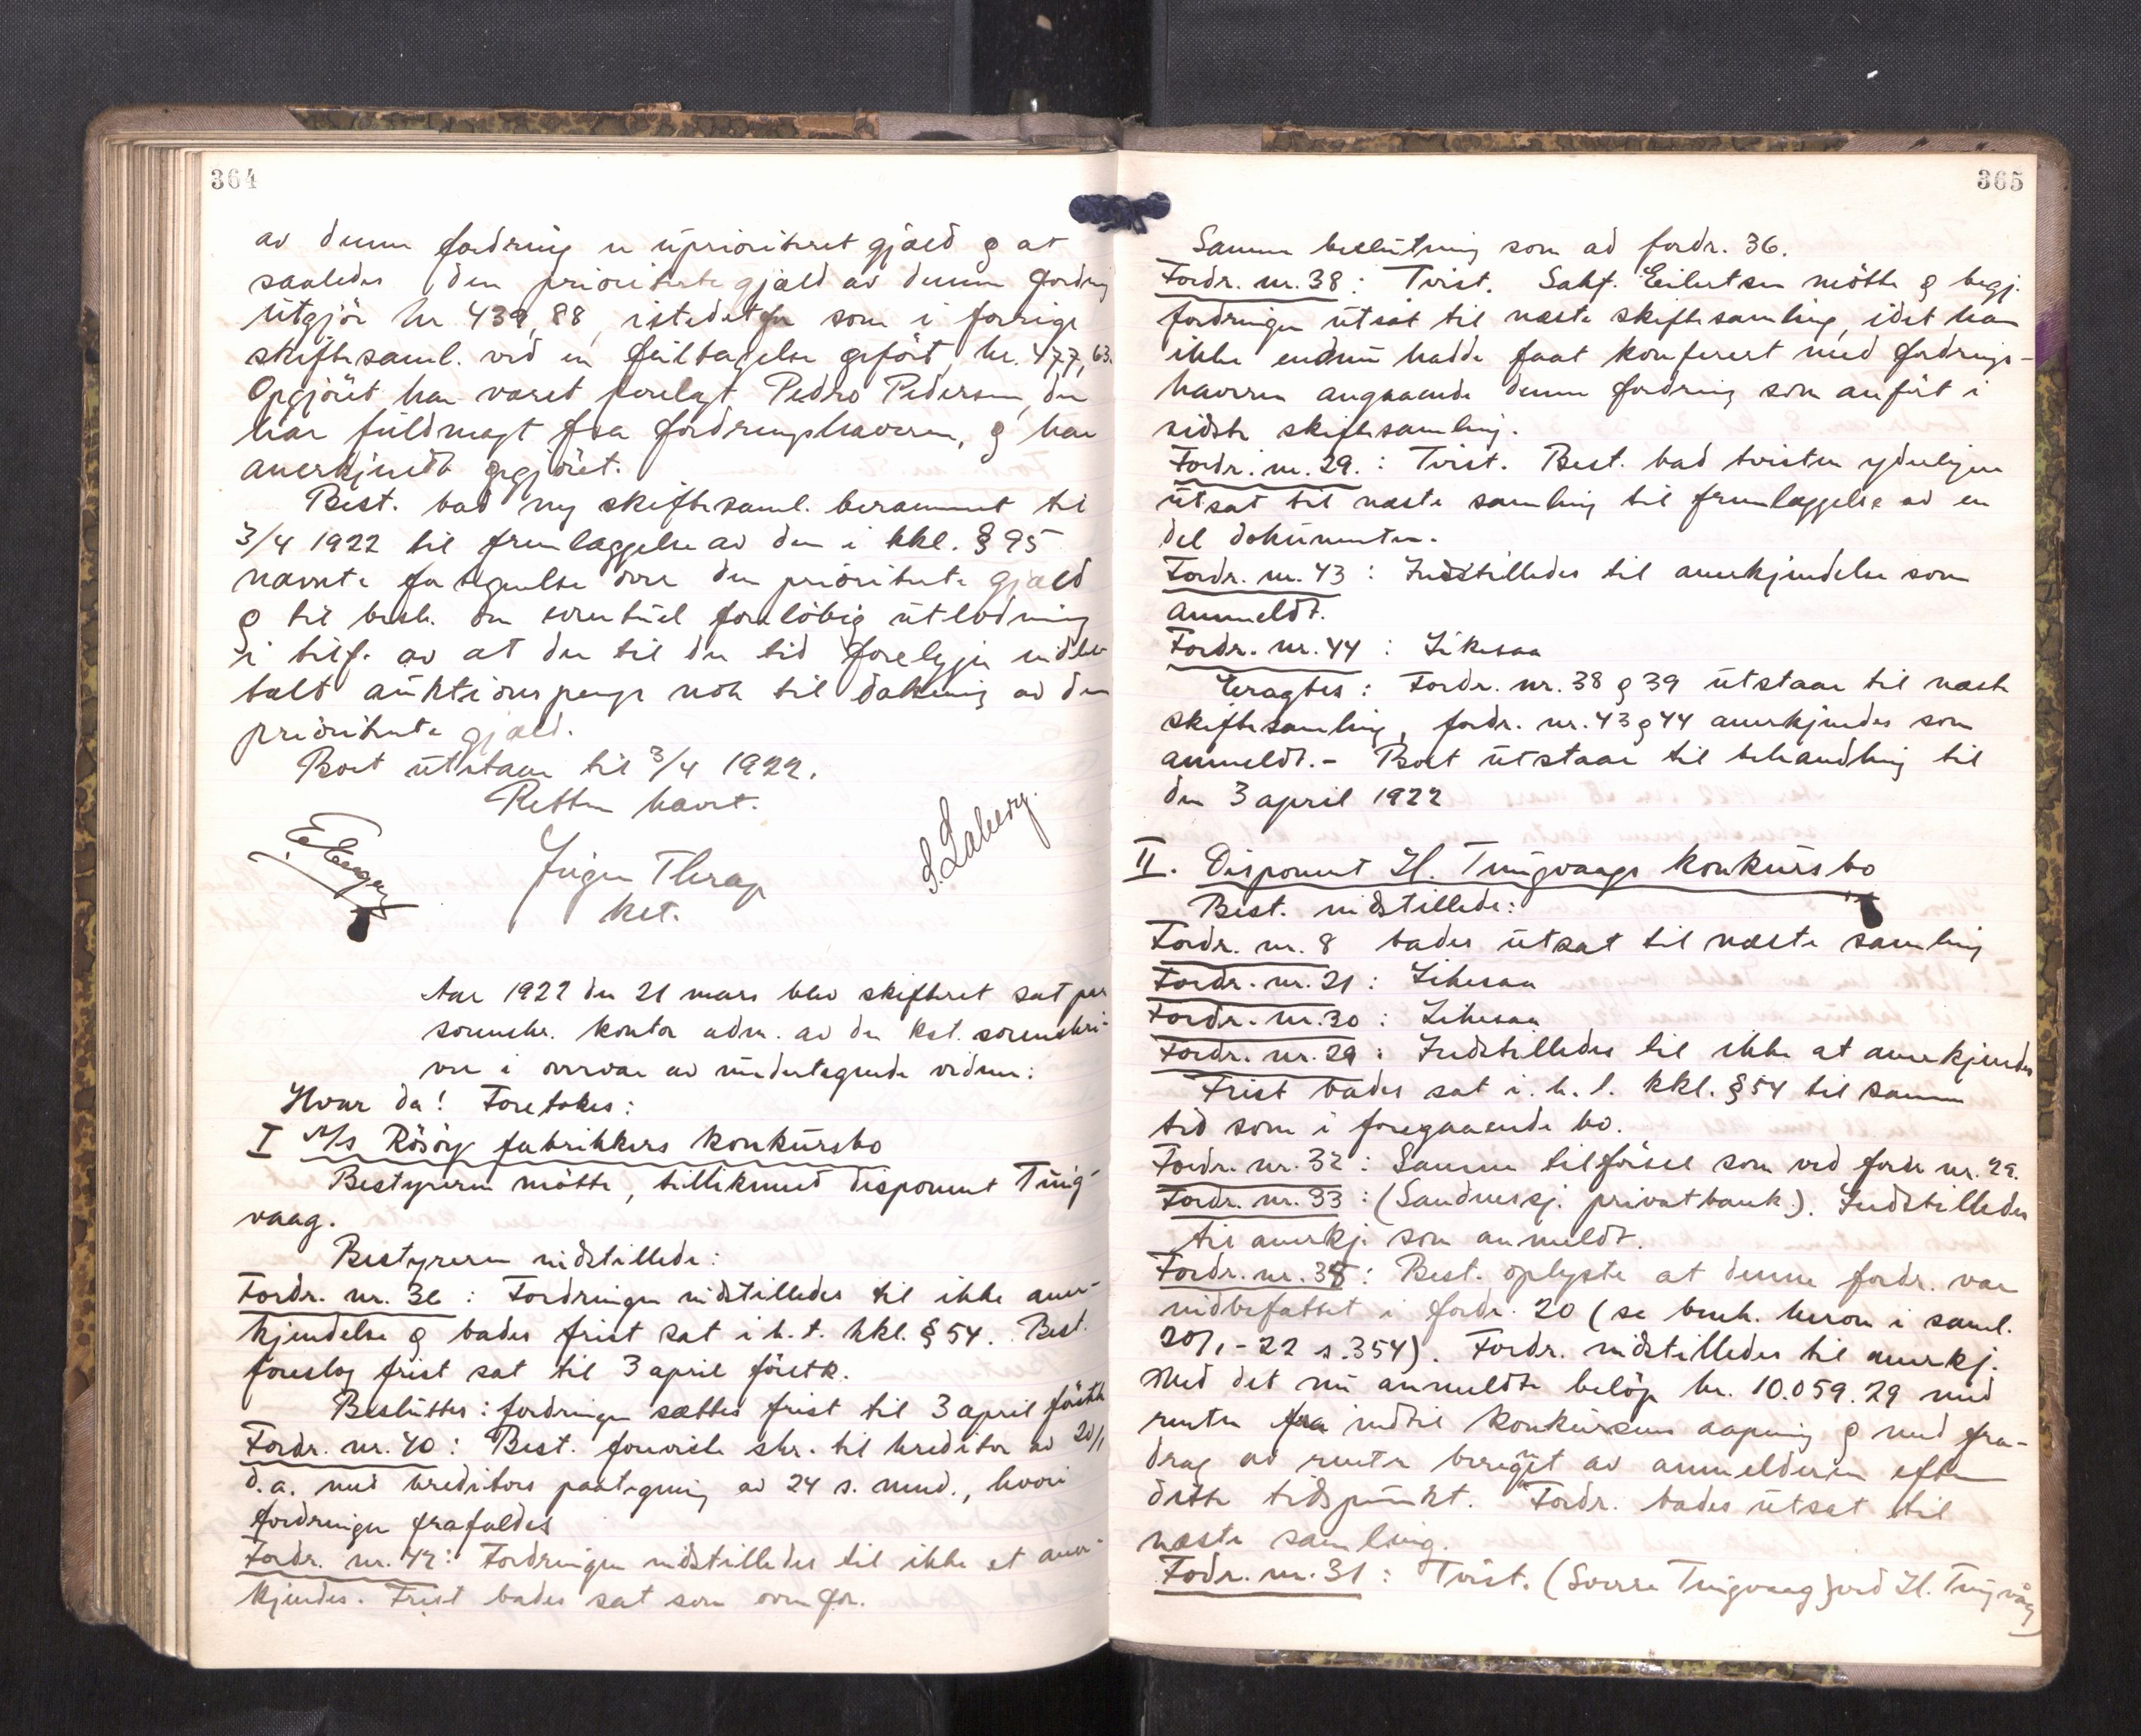 364
av denne fordring er uprioritert gjæld & at
saaledes den prioriterte gjæld av denne fordring
utgjör kr 439,88, istedetfor som i forrige
skiftesaml. ved en feiltagelse opfört, kr. 477,63.
Opgjöret har været forelagt Pedro Pedersen, der
har fuldmagt fra fordringshaveren, & har
anerkjendt opgjöret.
Best. bad ny skiftesaml. berammet til
3/4 1922 til fremlæggelse av den i kkl. § 95
nævnte fortegnelse over den prioriterte gjæld
& til besl. om eventuel foreløbig utlodning
i tilf. av at der til den tid foreligger indbe-
talt auktionspenge nok til dækning av den
prioriterte gjæld.
Boet utstaar til 3/4 1922.
Retten hævet.
Jörgen Therap
kst.
S. Laberg.
Aar 1922 den 21 mars blev skifteret sat paa
sorenskr. kontor adm. av den kst. sorenskri-
ver i overvær av undertegnede vidner:
Hvor da! Foretokes:
I A/s Rösök fabrikkers konkursbo
Bestyreren mötte, tillikemed disponent Ting-
vaag.
Bestyreren indstillede:
Fordr. nr. 36 : Fordringen indstilledes til ikke aner-
kjendelse & bades frist sat i h. t. kkl. § 54. Best.
foreslog frist sat til 3 april förstk.
Besluttes: fordringen sættes frist til 3 april förstk
Fordr. nr. 40 : Best. foreviste skr. til kreditor av 20/1
d.a. med kreditors paategning av 24 s. mnd., hvori
fordringen frafaldes
Fordr. nr. 42: Fordringen indstilledes til ikke at aner-
kjendes. Frist bades sat som ovenfor.
365
Samme beslutning som ad fordr. 36.
Fordr. nr. 38 : Tvist. Sakf. Eilertsen mötte & begj.
fordringen utsat til næste skiftesamling, idet han
ikke endnu hadde faat konferert med fordrings-
haveren angaaende denne fordring som anfört i
sidste skiftesamling.
Fordr. nr. 29. : Tvist. Best. bad tvisten yderligere
utsat til næste samling til fremlæggelse av en
del dokumenter.
Fordr. nr. 43 : Indstilledes til anerkjendelse som
anmeldt.
Fordr. nr. 44 : Likesaa
Eragtes: Fordr. nr. 38 & 39 utstaar til næste
skiftesamling, fordr. nr. 43 & 44 anerkjendes som
anmeldt. - Boet utstaar til behandling til
den 3 april 1922
II. Disponent H. Tingvaags konkursbo
Best. indstillede:
Fordr. nr. 8 bades utsat til næste samling
Fordr. nr. 21 : Likesaa
Fordr. nr. 30 : Likesaa
Fordr. nr. 29 : Indstilledes til ikke at anerkjendes
Frist bades sat i. h. t. kkl. § 54 til samme
tid som i foregaaende bo.
Fordr. nr. 32 : Samme tilförsel som ved fordr nr. 29.
Fordr. nr. 33 : (Søndmørsj. privatbank). Indstilledes
til anerkj. som anmeldt.
Fordr. nr. 35 : Best. oplyste at denne fordr. var
indbefattet i fordr. 20 (se bemk. herom i saml.
20/1 - 22 s. 354). Fordr. indstilledes til anerkj.
med det nu anmeldte belöp kr. 10.059.29 med
renter fra indtil konkursens aapning & med fra-
drag av renter beregnet av anmelderen efter
dette tidspunkt. Fordr. bades utsat til
næste samling.
Fodr. nr. 31 : Tvist. (Sverre Tingvaag) ved H. Tingvåg)